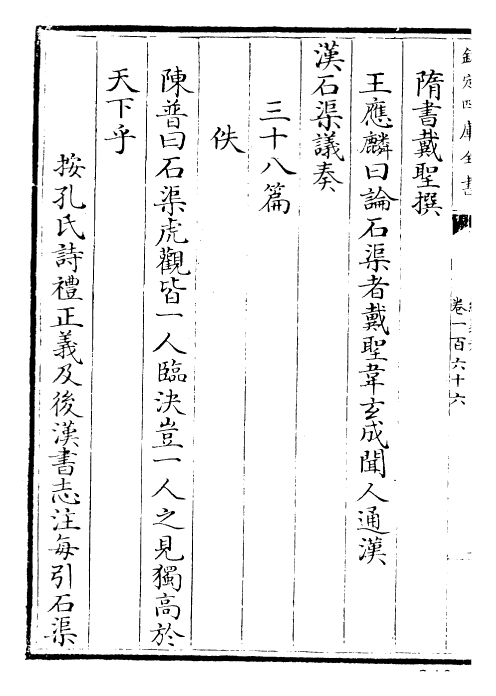 欽定四庫全書
卷一百六十六
隋書戴聖撰
王應麟曰論石渠者戴聖韋玄成聞人通漢
漢石渠議奏
三十八篇
佚
陳普曰石渠虎觀皆一人臨決豈一人之見獨高於
天下乎
按孔氏詩禮正義及後漢書志注每引石渠